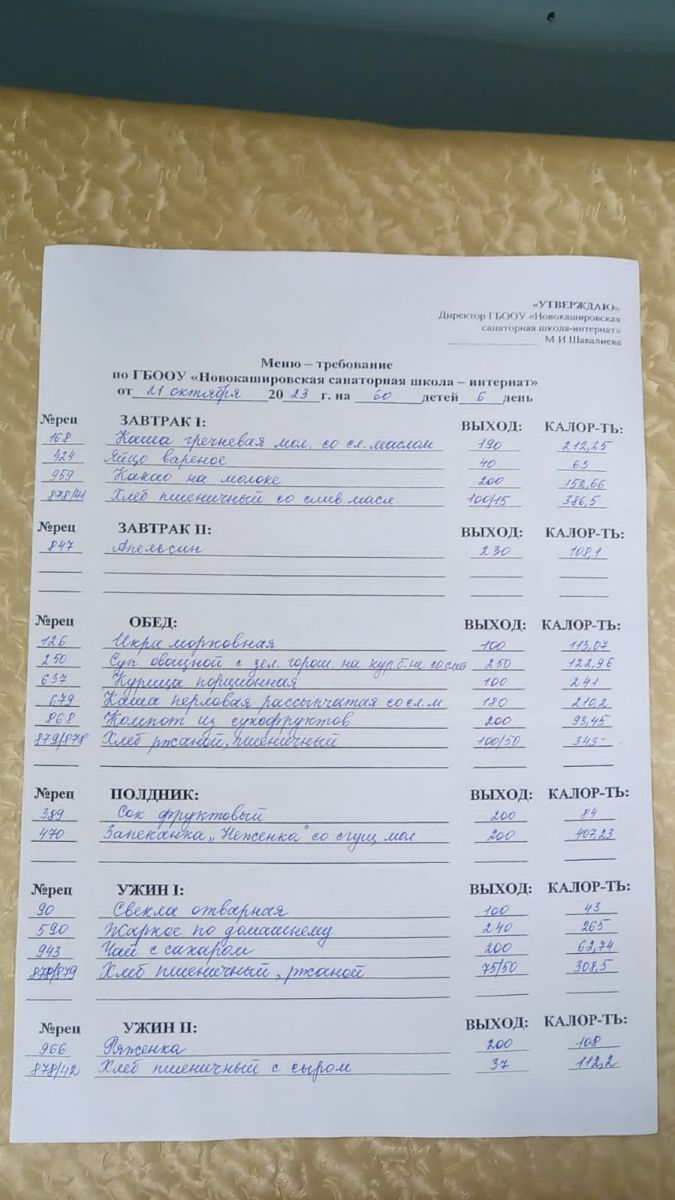 «УТВЕРЖДАЮ»
Директор ГБООУ «Новокашировская
санаторная школа-интернат»
М.И.Шавалиева
Меню – требование
по ГБООУ «Новокашировская санаторная школа – интернат»
от 21 октября 2023 г. на 60 детей 6 день
№рец ЗАВТРАК I: ВЫХОД: КАЛОР-ТЬ:
168 Каша гречневая мол. со сл. маслом 190 212,25
424 Яйцо вареное 40 63
959 Какао на молоке 200 152,66
878/41 Хлеб пшеничный со слив. масл 100/15 386,5
№рец ЗАВТРАК II: ВЫХОД: КАЛОР-ТЬ:
847 Апельсин 230 108,1
№рец ОБЕД: ВЫХОД: КАЛОР-ТЬ:
126 Икра морковная 100 113,07
250 Суп овощной с зел. горош. на кур.б-не со смет 250 122,96
637 Курица порционная 100 241
679 Каша перловая рассыпчатая со сл.м 180 210,2
868 Компот из сухофруктов 200 93,45
879/878 Хлеб ржаной, пшеничный 100/50 343-
№рец ПОЛДНИК: ВЫХОД: КАЛОР-ТЬ:
389 Сок фруктовый 200 84
470 Запеканка „Неженка" со сгущ. мол 200 407,23
№рец УЖИН I: ВЫХОД: КАЛОР-ТЬ:
90 Свекла отварная 100 43
590 Жаркое по домашнему 240 265
943 Чай с сахаром 200 62,74
878/879 Хлеб пшеничный, ржаной 75/50 308,5
№рец УЖИН II: ВЫХОД: КАЛОР-ТЬ:
966 Ряженка 200 108
878/42 Хлеб пшеничный с сыром 37 112,2